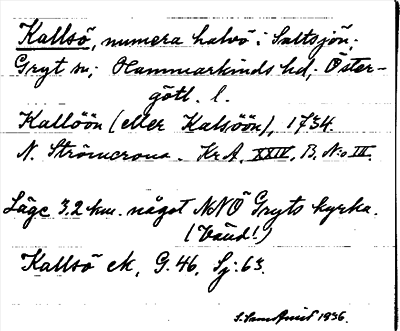 Kallsö, numera halvö i Saltsjön;
Gryt sn; Hammarkinds hd; Öster-
götl. l.
Kallöön (eller Kalsöön), 1734.
N. Strömcrona. Kr A, XXIV, B, N:o III.
Läge 3.2 km. något NNÖ Gryts kyrka.
(Vänd!)
Kallsö ek, G. 46, Sj: 63.
1936.